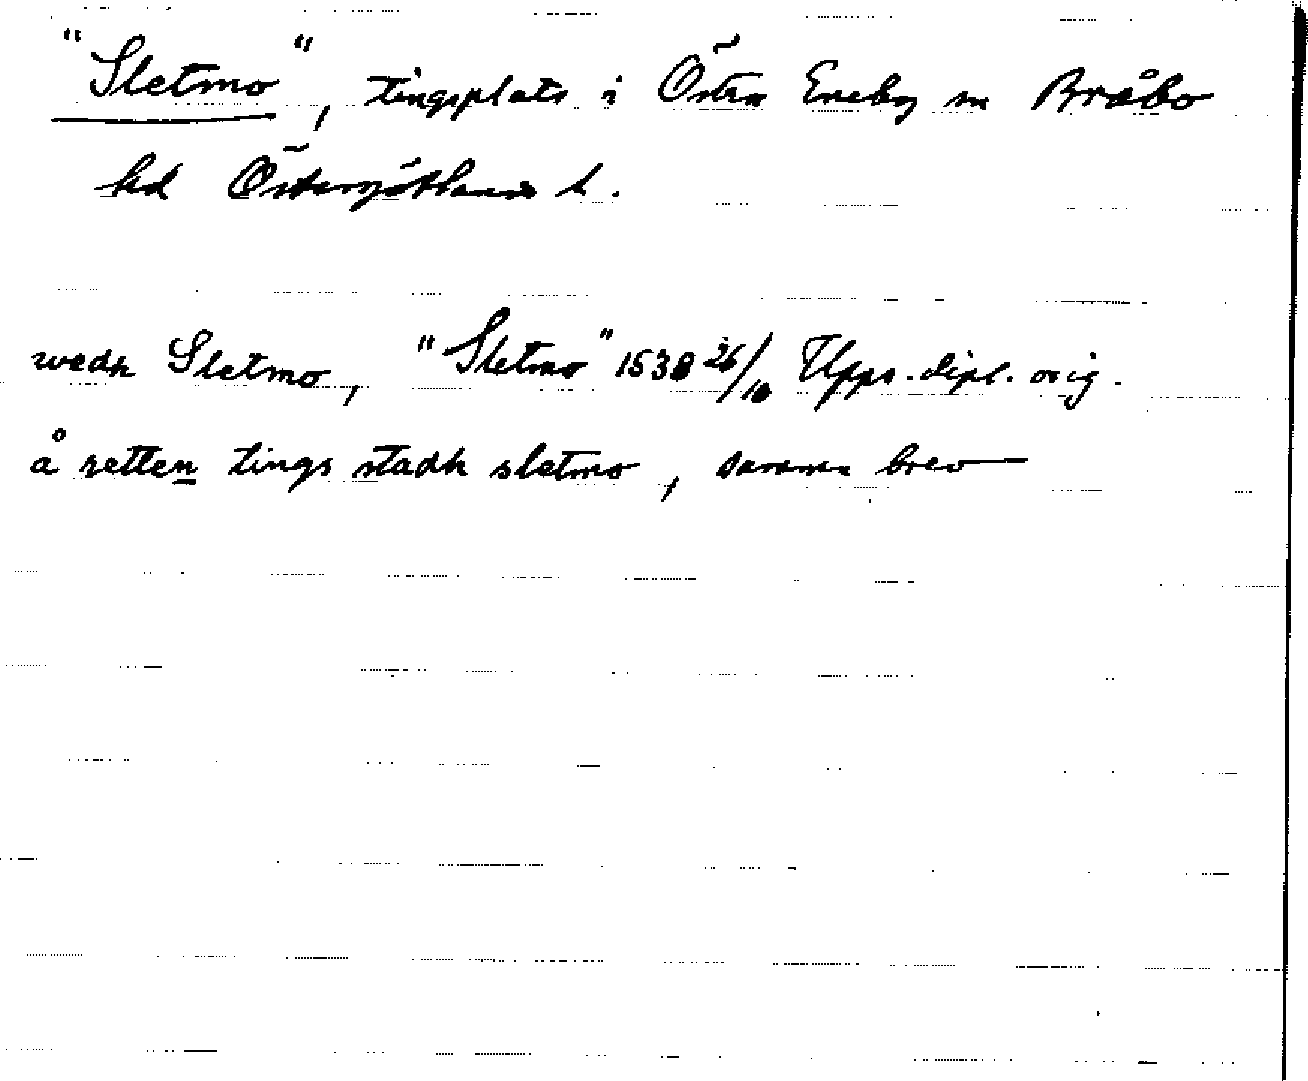 "Sletmo", tingsplats i Östra Eneby sn Bråbo
hd Östergötlands l.
wedh Sletmo, "Sletmo" 1538 26/10 Upps. dipl. orig.
å retten tings stadh sletmo, samma brev